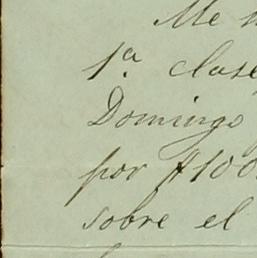 Me
1ª clase
Domingo
por $100
sobre el